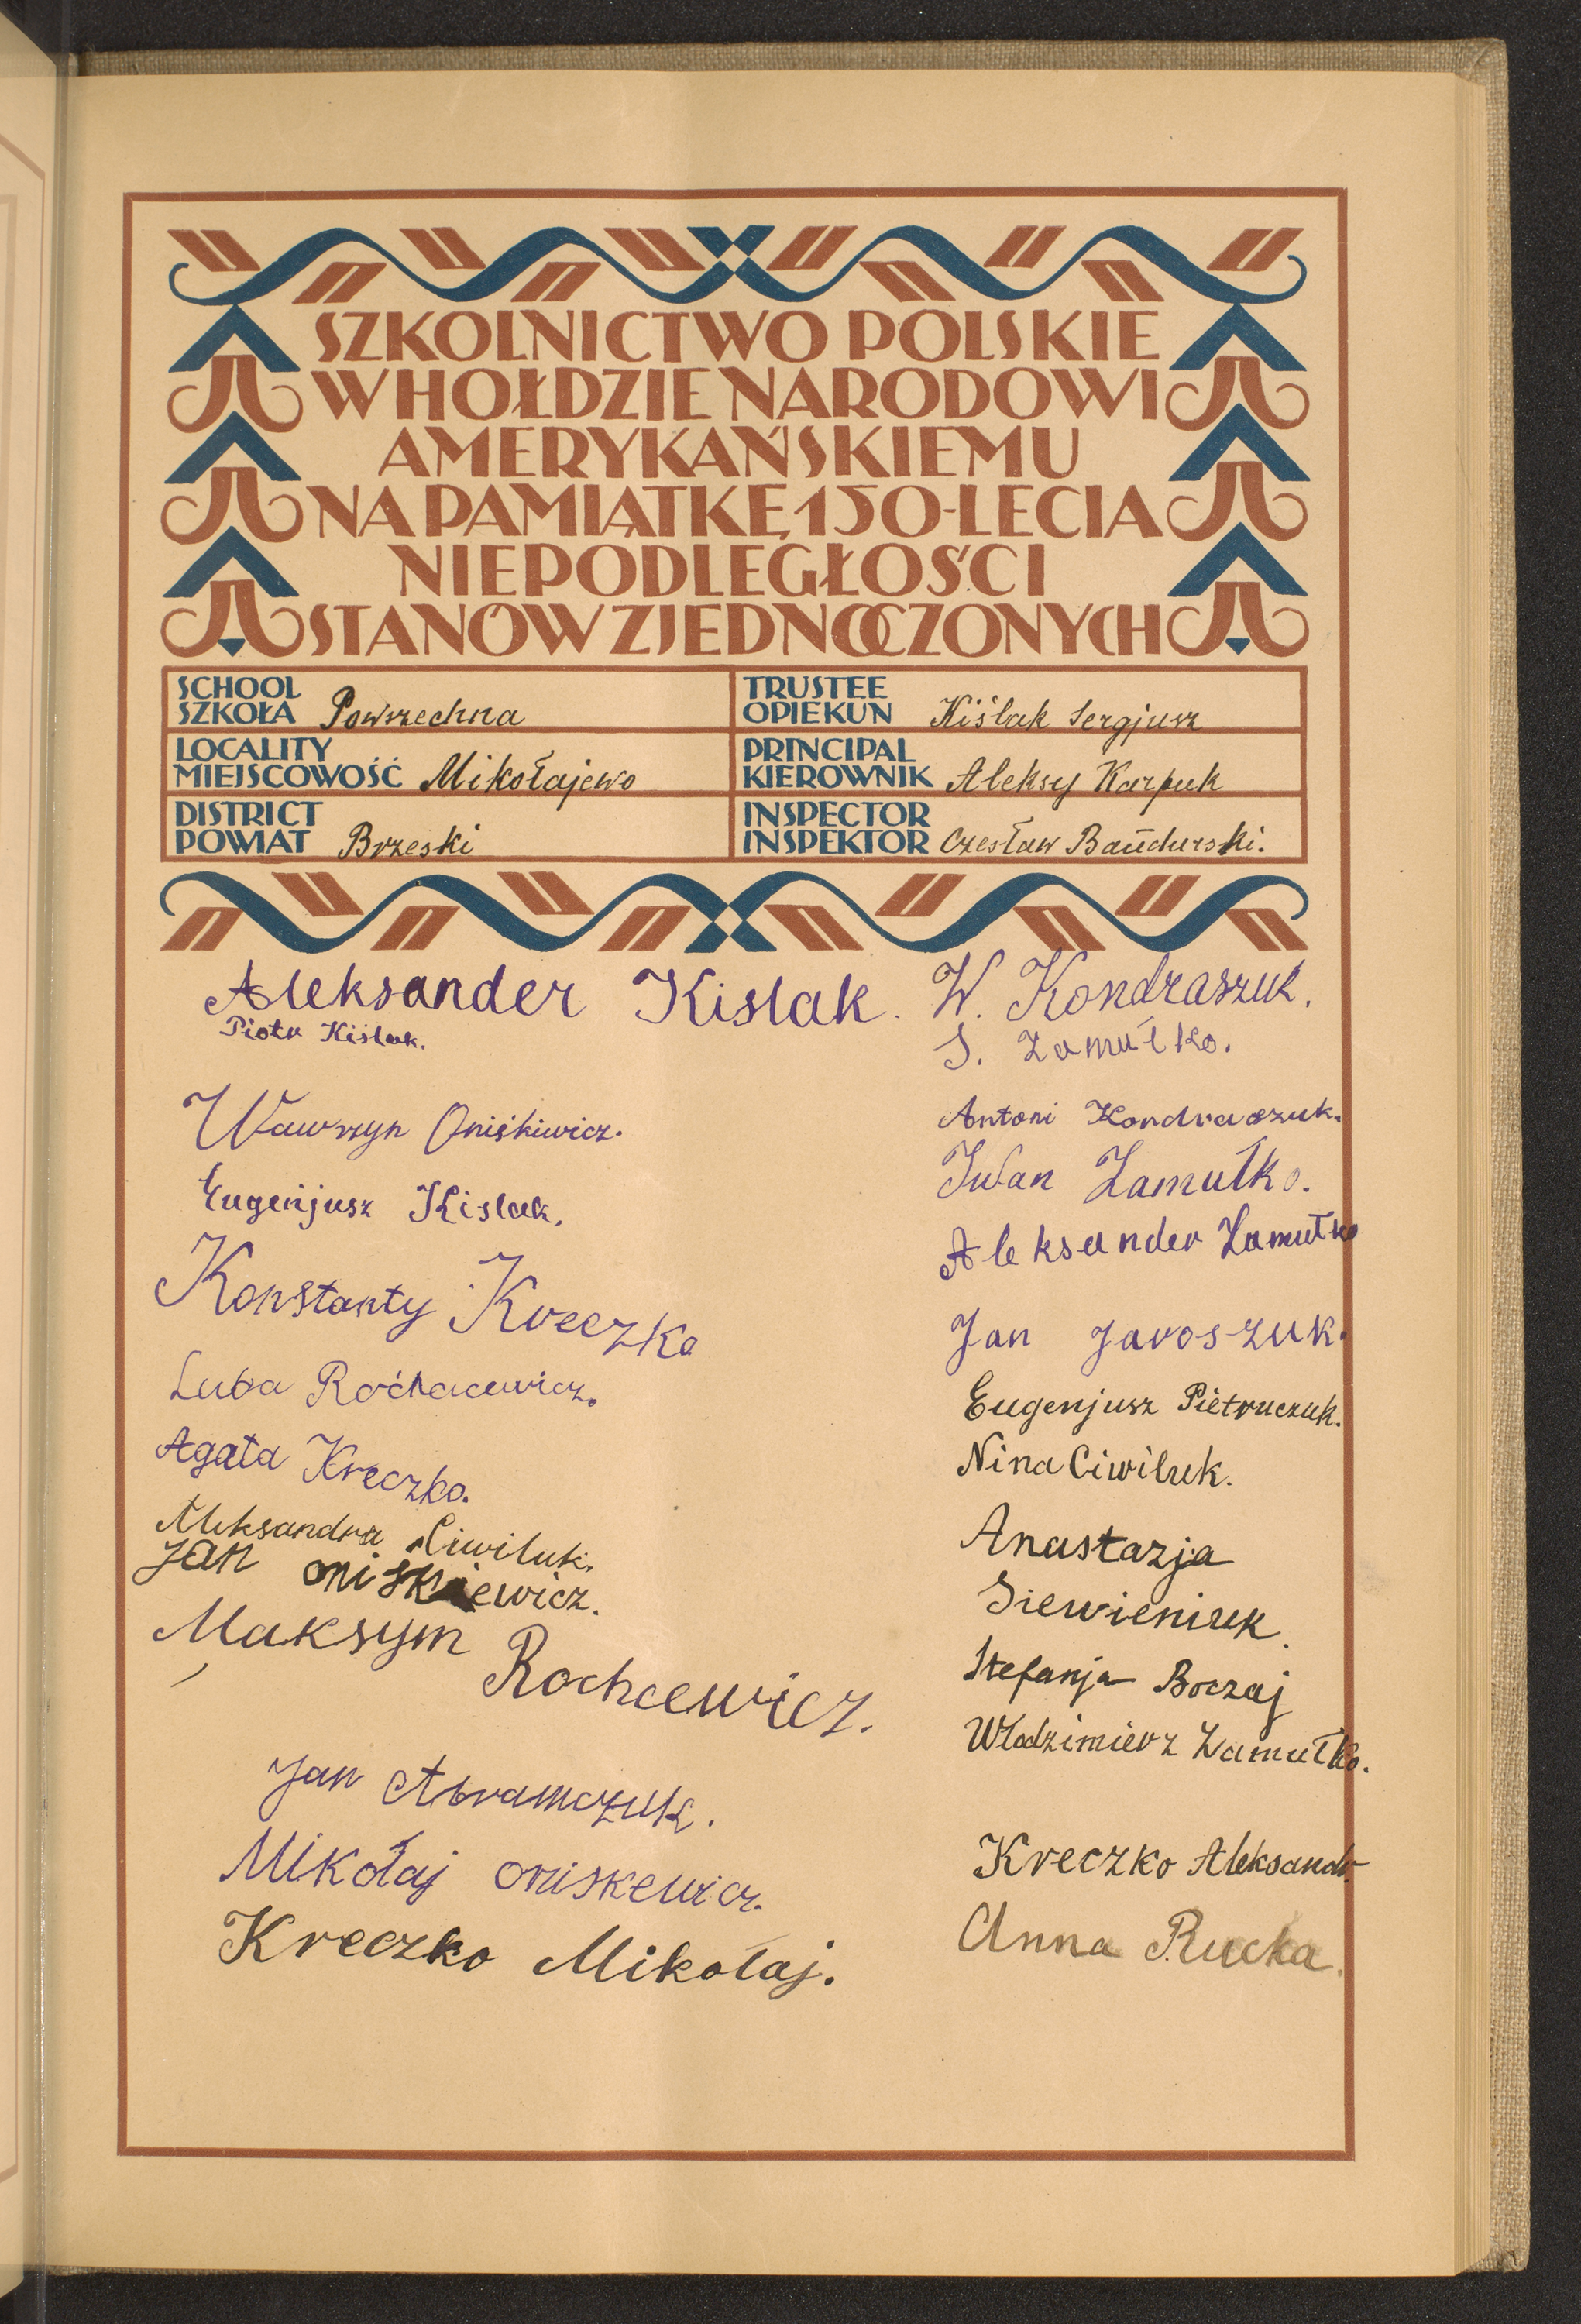 SZKOLNICTWO POLSKIE
W HOŁDZIE NARODOWI
AMERYKAŃSKIEMU
NA PAMIĄTKĘ 150-LECIA
NIEPODLEGŁOŚCI
STANÓW ZJEDNOCZONYCH
SCHOOL
SZKOŁA Powszechna
TRUSTEE
OPIEKUN Kiślak Sergjusz
LOCALITY
MIEJSCOWOŚĆ Mikołajewo
PRINCIPAL
KIEROWNIK Aleksy Karpuk
DISTRICT
POWIAT Brzeski
INSPECTOR
INSPEKTOR Czesław Bańdurski.
Aleksander Kislak.
Piotr Kiślak.
Wawrzyn Oniśkiwicz.
Eugenjusz Kislak.
Konstanty Kreczko
Luba Rochacewicz.
Agata Kreczko.
Aleksandra Ciwiluk.
Jan oniskiewicz.
Maksym Rochcewicz.
Jan Abramczuk.
Mikołaj oniskewicz.
Kreczko Mikołaj.
W. Kondraszuk.
S. Zamułko.
Antoni Kondraszuk.
Iwan Zamułko.
Aleksander Zamułko
Jan Jaroszuk.
Eugenjusz Pietruczuk.
Nina Ciwiluk.
Anastazja
Siewieniuk.
Stefanja Boczaj
Włodzimierz Zamułko.
Kreczko Aleksandr.
Anna Rucka.